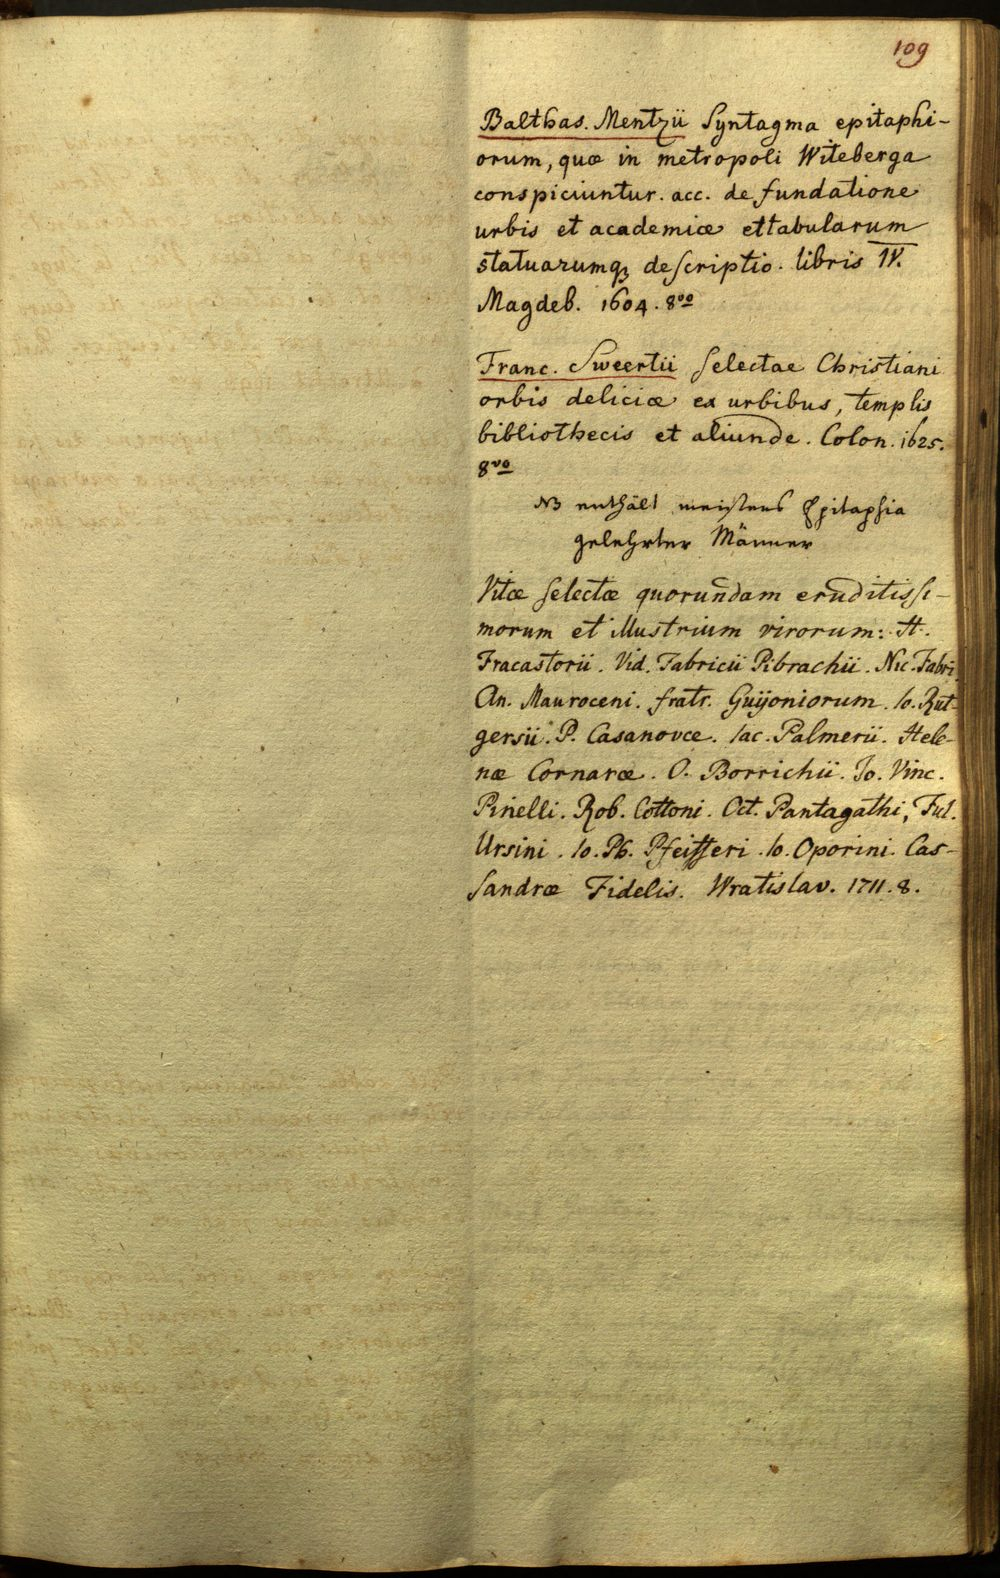 109
Balthas. Mentzii Syntagma epitaphi-
orum, quæ in metropoli Witeberga
conspiciuntur. acc. de fundatione
urbis et academiæ et tabularum
statuarumq descriptio. libris IV.
Magdeb. 1604. 8vo
Franc. Sweertii Selectae Christiani
orbis deliciæ ex urbibus, templis
bibliothecis et aliunde. Colon. 1625.
8vo
NB enthält meistens Epitaphia
gelehrter Männer
Vitæ selectæ quorundam eruditissi-
morum et illustrium virorum: H.
Fracastorii. Vid. Fabricii Pibrachii. Nic. Fabri.
An. Mauroceni. fratr. Guijoniorum. Io. Rut-
gersii. P. Casanovæ. Iac. Palmerii. Hele-
næ Cornaræ. O. Borrichii. Jo. Vinc.
Pinelli. Rob. Cottoni. Oct. Pantagathi, Ful.
Ursini. Io. Ph. Pfeifferi. Io. Oporini. Cas-
sandræ Fidelis. Wratislav. 1711. 8.